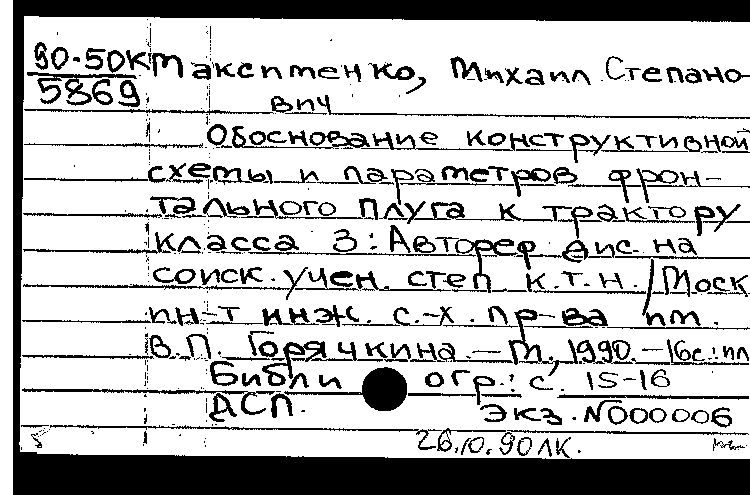 90-50К Максименко, Михаил Степано-
5869 вич
Обоснование конструктивной
схемы и параметров фрон-
тального плуга к трактору
класса 3: Автореф дис. на
соиск. учен. степ к.т.н. / Моск
ин-т инж. с.-х. пр-ва им.
В.П. Горячкина. — М., 1990. — 16с.: ил
Библиогр.: с. 15-16
ДСП. Экз. N000006
26.10.90 ЛК.